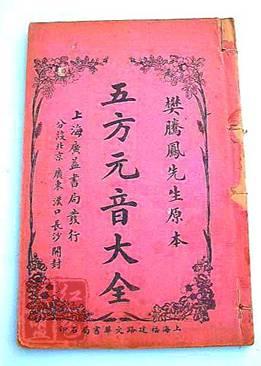 樊騰鳳先生原本
五方元音大全
上海廣益書局發行
分設北京廣東漢口長沙開封
上海福建路文華書局石印